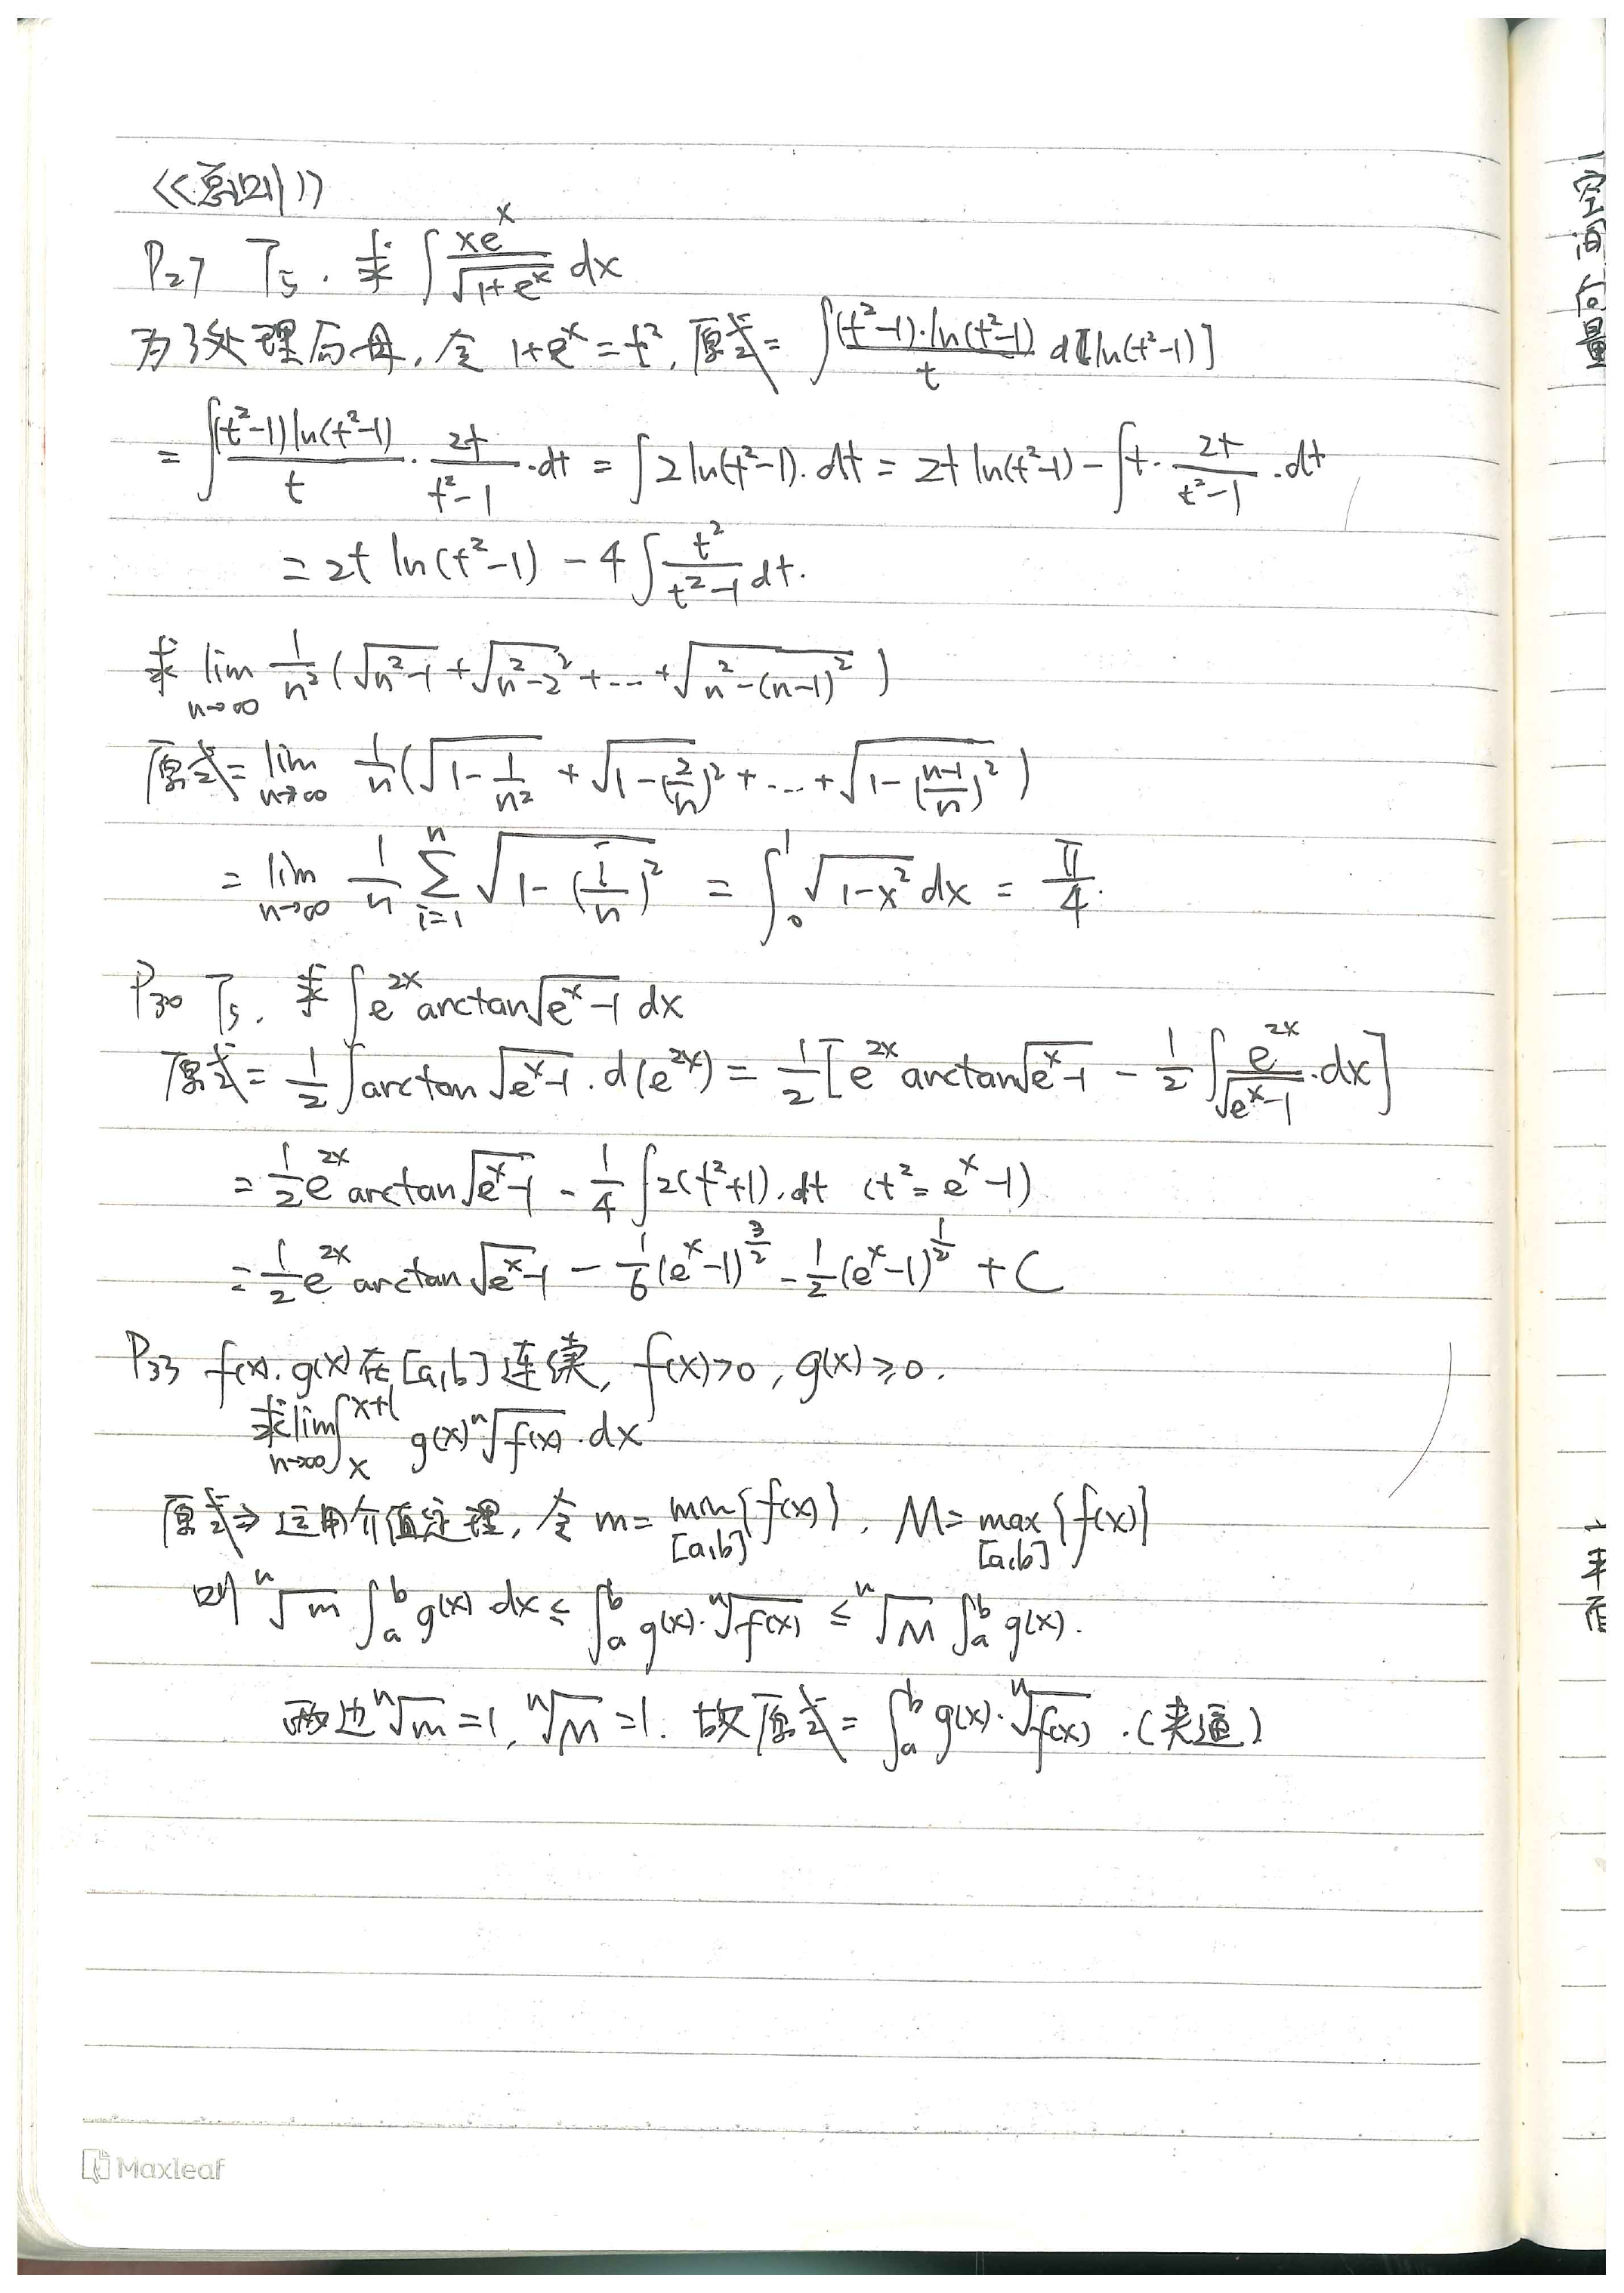 P27 T5. 求 ∫ xe^x/√(1+e^x) dx
为了处理分母, 令 1+e^x = t², 原式 = ∫ (t²-1)·ln(t²-1)/t d[ln(t²-1)]
= ∫ (t²-1)ln(t²-1)/t · 2t/(t²-1) ·dt = ∫ 2ln(t²-1)·dt = 2t ln(t²-1) - ∫t· 2t/(t²-1) ·dt
= 2t ln(t²-1) - 4∫ t²/(t²-1) dt.
求 lim_{n→∞} 1/n² (√(n²-1) + √(n²-2²) + ... + √(n²-(n-1)²))
原式 = lim_{n→∞} 1/n (√(1-1/n²) + √(1-(2/n)²) + ... + √(1-((n-1)/n)²))
= lim_{n→∞} 1/n ∑_{i=1}^{n} √(1-(i/n)²) = ∫_0^1 √(1-x²) dx = π/4.
P30 T5. 求 ∫ e^{2x} arctan√(e^x-1) dx
原式 = 1/2 ∫ arctan √(e^x-1) · d(e^{2x}) = 1/2 [e^{2x} arctan√(e^x-1) - 1/2 ∫ e^{2x}/√(e^x-1) ·dx]
= 1/2 e^{2x} arctan√(e^x-1) - 1/4 ∫2(t²+1)·dt (t² = e^x-1)
= 1/2 e^{2x} arctan√(e^x-1) - 1/6 (e^x-1)^{3/2} - 1/2 (e^x-1)^{1/2} + C
P33 f(x). g(x) 在 [a,b] 连续, f(x)>0, g(x)≥0.
求 lim_{n→∞} ∫_x^{x+1} g(x) ⁿ√f(x) ·dx
原式⇒ 运用介值定理, 令 m = min_{[a,b]}{f(x)}, M = max_{[a,b]}{f(x)}
则 ⁿ√m ∫_a^b g(x) dx ≤ ∫_a^b g(x)·ⁿ√f(x) ≤ ⁿ√M ∫_a^b g(x).
两边 ⁿ√m = 1, ⁿ√M = 1. 故原式 = ∫_a^b g(x)·ⁿ√f(x) .(夹逼)
Maxleaf
空间向量